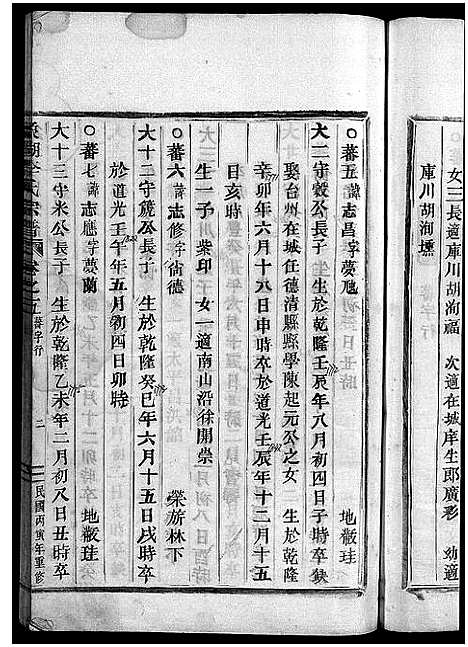 女三長適庫川胡洵福 次適在城庠生郎廣彩 幼適
庫川胡洵壎
○蕃五諱志昌字夢虺 地蔽珪
大二守觳公長子 生於乾隆壬辰年八月初四日子時卒缺
娶台州在城任德清縣縣學陳起元公之女 生於乾隆
辛卯年六月十八日申時卒於道光壬辰年十二月十五
日亥時
生一子川紫印子女一適南山沿徐開崇
○蕃六諱志修字尚德 榮旂林下
大十二守箎公長子 生於乾隆癸巳年六月十五日戌時卒
於道光壬午年五月初四日卯時
○蕃七諱志應字夢蘭 地蔽珪
大十三守米公長子 生於乾隆乙未年二月初八日丑時卒
李氏宗譜 卷之五 蕃字行 二 民國丙寅年重修